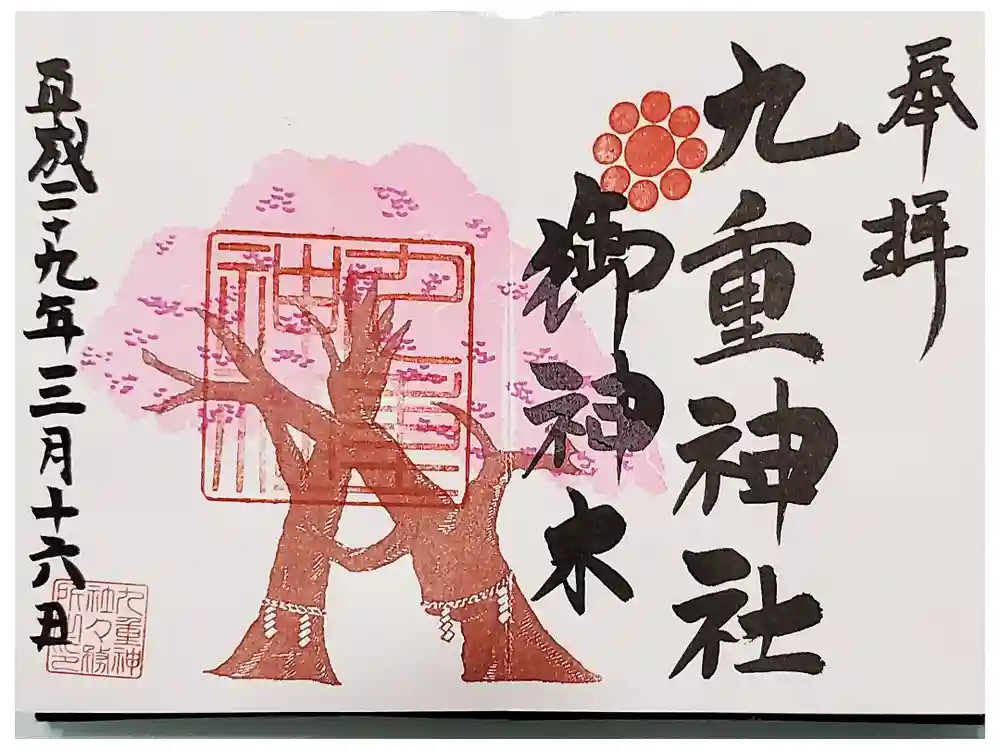 奉拝
九重神社
御神木
九重
神社
平成二十九年三月十六日
九重神
社々務
所之印